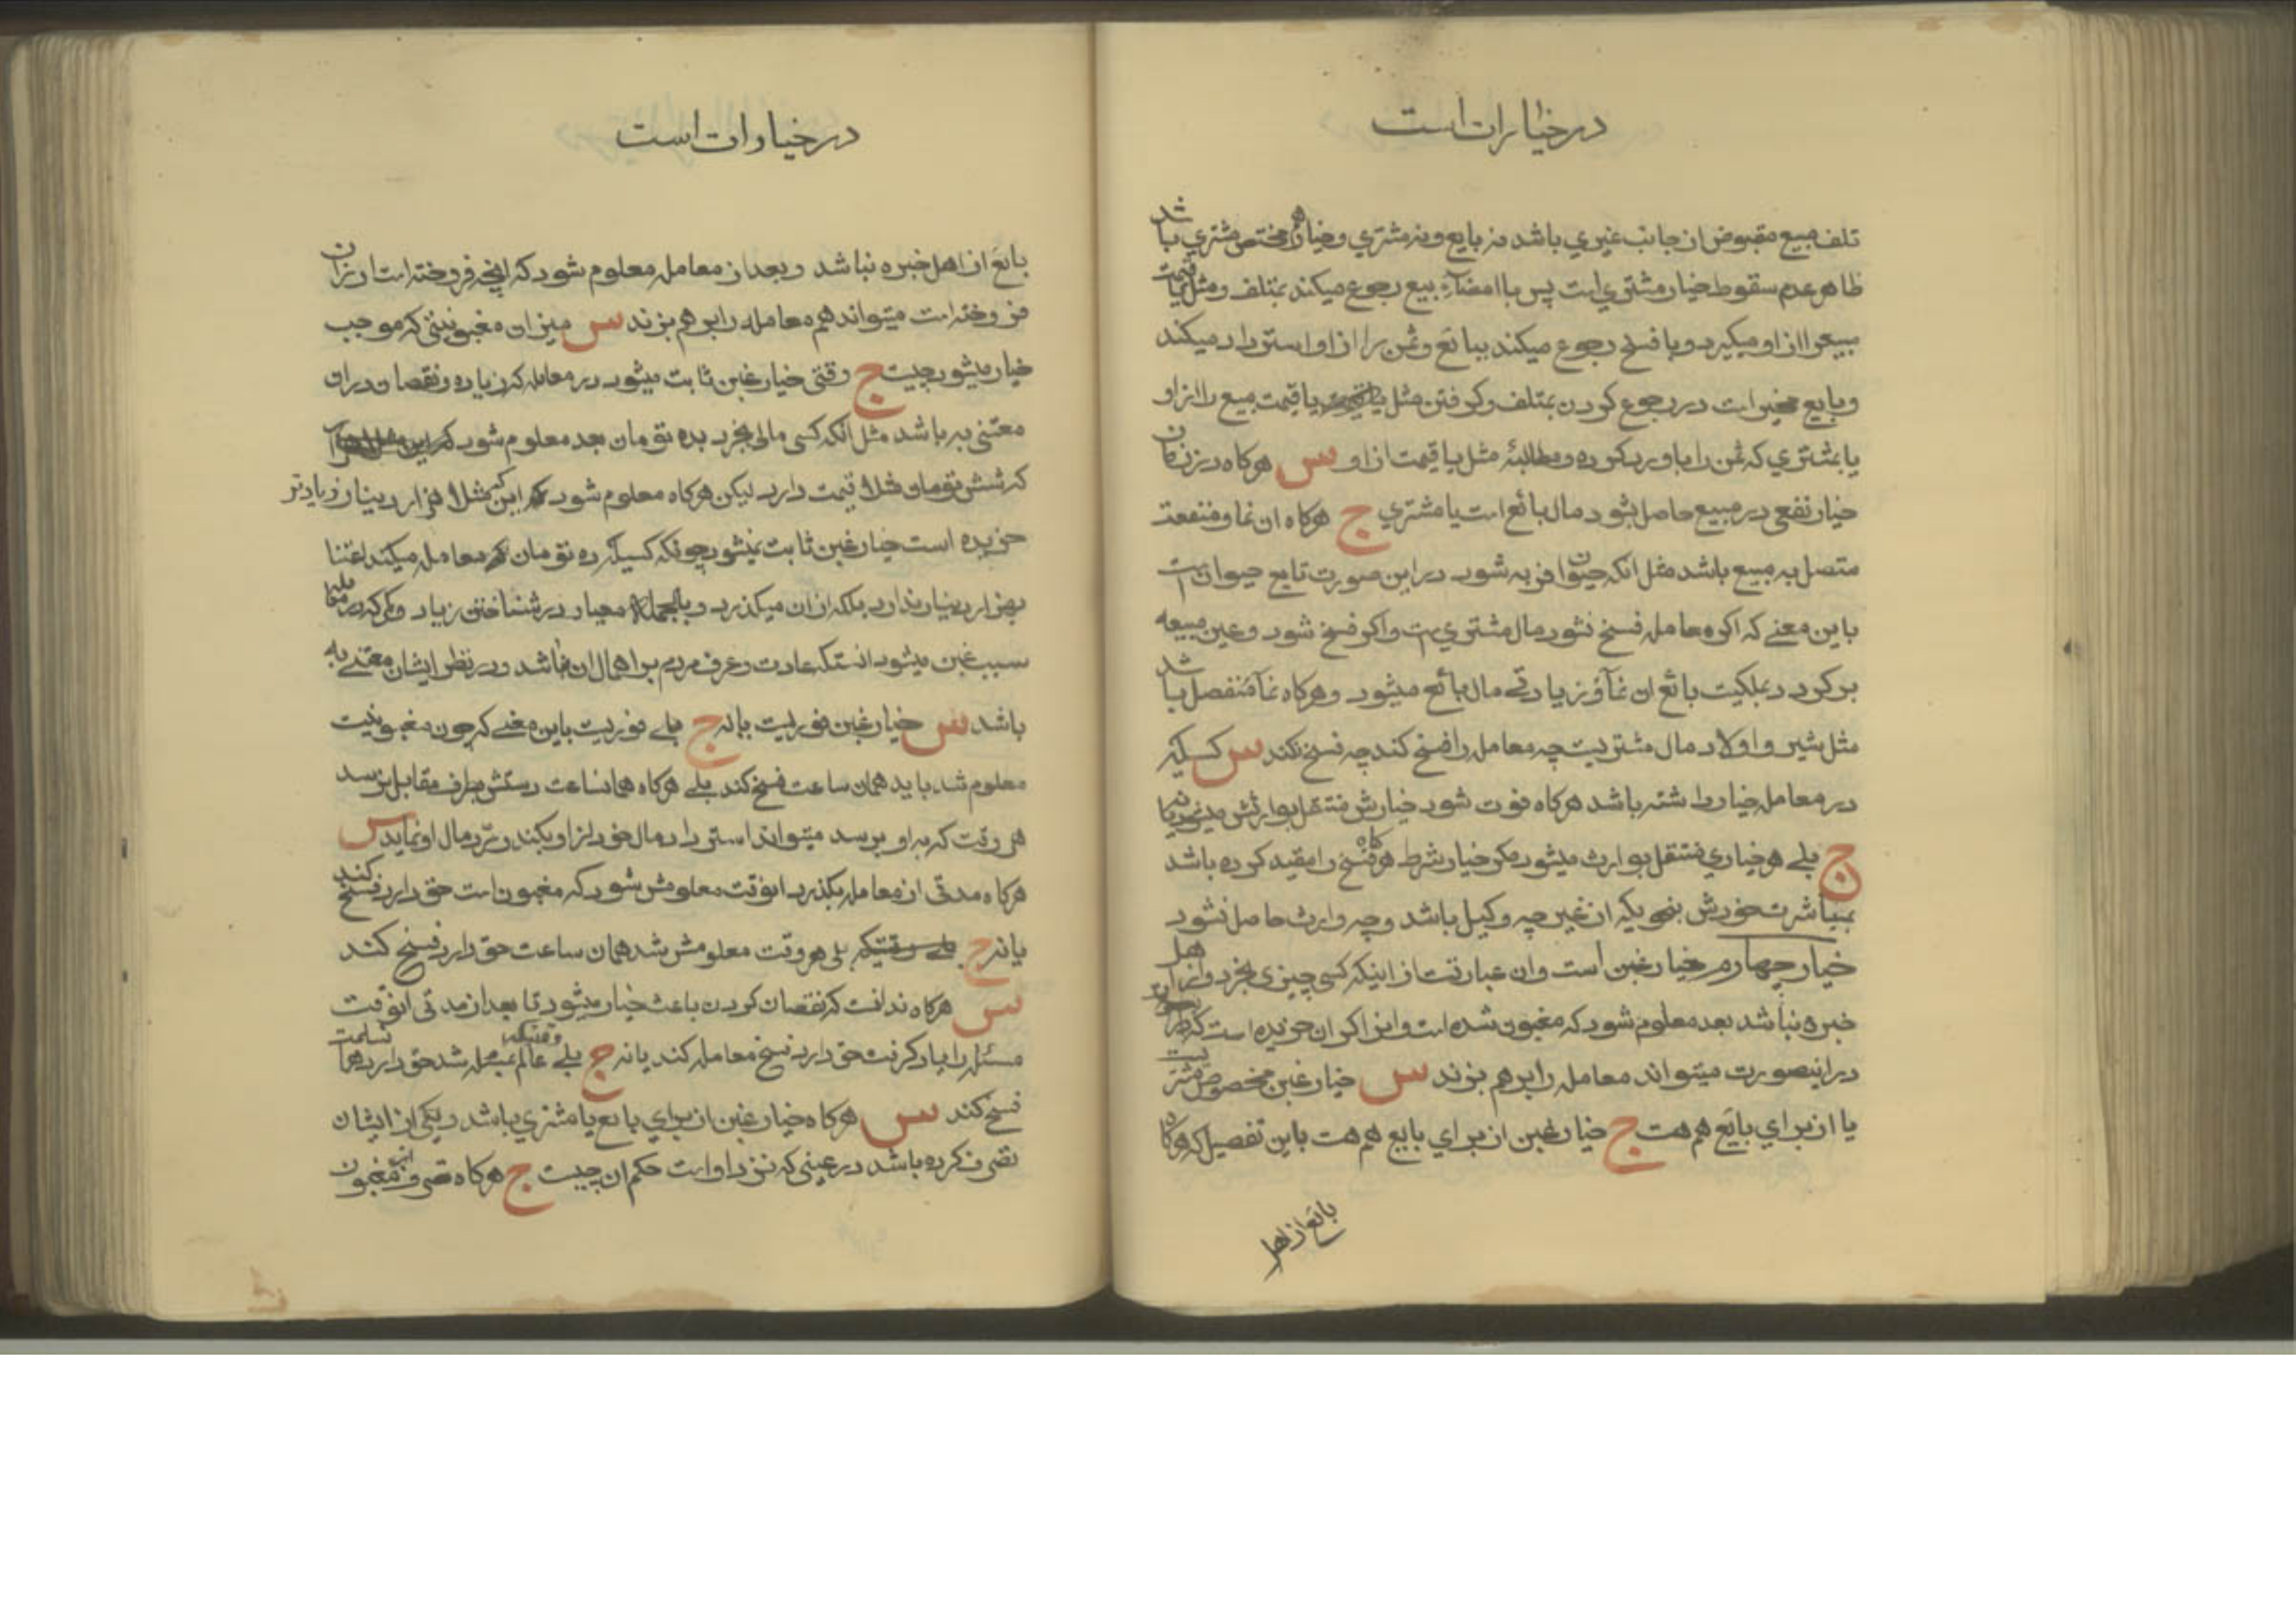 در خیارات است
تلف مبیع مقبوض از جانب غیری باشد نه بایع و نه مشتری و خیار هم مختص مشتری باشد
ظاهر عدم سقوط خیار مشتری است پس با امضآء بیع رجوع میکند بمتلف و مثل یا قیمت
مبیع را از او میگیرد و با فسخ رجوع میکند ببائع و ثمن را از او استرداد میکند
و بایع مخیر است در رجوع کردن بمتلف و کرفتن مثل یا قیمت مبیع را از او
یا بمشتری که ثمن را باو رد کرده و مطالبهٔ مثل یا قیمت از او س هرکاه در زمان
خیار نفعی در مبیع حاصل بشود مال بائع است یا مشتری ج هرکاه ان نما و منفعت
متصل به مبیع باشد مثل انکه حیوان فربه شود در این صورت تابع حیوان است
باین معنی که اکر معامله فسخ نشود مال مشتری است و اکر فسخ شود و عین مبیعه
برکردد بملکیت بائع ان نمآء و زیادتی مال بائع میشود و هرکاه نمآء منفصل باشد
مثل شیر و اولاد مال مشتریست چه معامله را فسخ کند چه فسخ نکند س کسیکه
در معامله خیار داشته باشد هرکاه فوت شود خیارش منتقل بوارثش میشود یا نه
ج بلی هر خیاری منتقل بوارث میشود مکر خیار شرط هرکاه فسخ را مقید کرده باشد
بمباشرت خودش بنحویکه از غیر چه وکیل باشد و چه وارث حاصل نشود
خیار چهارم خیار غبن است و ان عبارتست از اینکه کسی چیزی بخرد و از اهل
خبره نباشد بعد معلوم شود که مغبون شده است و انرا کران خریده است که
در اینصورت میتواند معامله را بر هم بزند س خیار غبن مخصوص مشتریست
یا از برای بایع هم هست ج خیار غبن از برای بایع هم هست باین تفصیل که هرکاه
بائع از اهل
در خیارات است
بائع از اهل خبره نباشد و بعد از معامله معلوم شود که انچه فروخته است ارزان
فروخته است میتواند هم معامله را بر هم بزند س میزان مغبونیتی که موجب
خیار میشود چیست ج وقتی خیار غبن ثابت میشود در معامله که زیاده و نقصان در ان
معتنی به باشد مثل انکه کسی مالی بخرد بده تومان بعد معلوم شود
که شش تومان مثلا قیمت دارد لیکن هرکاه معلوم شود که این مثلا هزار دینار زیادتر
خریده است خیار غبن ثابت نمیشود چونکه کسیکه ده تومان معامله میکند اعتنا
بهزار دینار ندارد بلکه از ان میکذرد و بالجمله معیار در شناختن زیاد و کم که در معامله
سبب غبن میشود انستکه عادت و عرف مردم بر اهمال ان نباشد و در نظر ایشان معتنی به
باشد س خیار غبن فوریست یا نه ج بلی فوریست باین معنی که چون مغبونیت
معلوم شد باید همان ساعت فسخ کند بلی هرکاه همانساعت دستش بطرف مقابل نرسد
هر وقت که به او برسد میتواند استرداد مال خود را از او بکند و ردّ مال او نماید س
هرکاه مدتی از معامله بکذرد انوقت معلومش شود که مغبون است حق دارد فسخ کند
یا نه ج بلی هر وقت معلومش شد همان ساعت حق دارد فسخ کند
س هرکاه ندانست که نقصان کردن باعث خیار میشود تا بعد از مدتی انوقت
مسئله را یاد کرفت حق دارد فسخ معامله کند یا نه ج بلی وقتیکه عالم بمسئله شد حق دارد همان ساعت
فسخ کند س هرکاه خیار غبن از برای بائع یا مشتری باشد و یکی از ایشان
تصرف کرده باشد در عینی که نزد او است حکم ان چیست ج هرکاه تصرف از مغبون